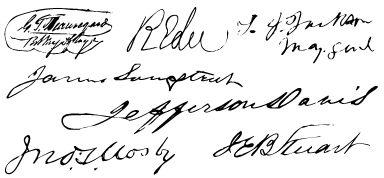 G. T. Beauregard
R E Lee
T. J. Jackson
Maj. Genl
James Longstreet
Jefferson Davis
Jno. S. Mosby
J E B Stuart